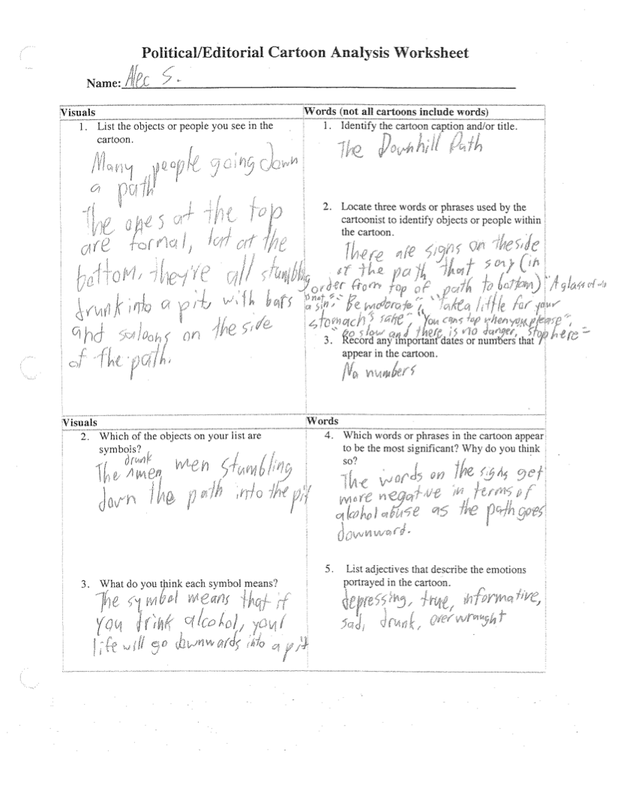 Political/Editorial Cartoon Analysis Worksheet
Name: Alec S.
Visuals
1. List the objects or people you see in the
cartoon.
Many people going down
a path
The ones at the top
are formal, but at the
bottom, they're all stumbling
drunk into a pit, with bars
and saloons on the side
of the path.
Words (not all cartoons include words)
1. Identify the cartoon caption and/or title.
The Downhill Path
2. Locate three words or phrases used by the
cartoonist to identify objects or people within
the cartoon.
There are signs on the side
of the path that say (in
order from top of path to bottom) "A glass of
is not a sin", "Be moderate", "Take a little for your
stomach's sake", "You can stop when you please",
"go slow and there is no danger, stop here"
3. Record any important dates or numbers that
appear in the cartoon.
No numbers
Visuals
2. Which of the objects on your list are
symbols?
The drunk men stumbling
down the path into the pit
3. What do you think each symbol means?
The symbol means that if
you drink alcohol, your
life will go downwards into a pit
Words
4. Which words or phrases in the cartoon appear
to be the most significant? Why do you think
so?
The words on the signs get
more negative in terms of
alcohol abuse as the path goes
downward.
5. List adjectives that describe the emotions
portrayed in the cartoon.
depressing, true, informative,
sad, drunk, overwrought